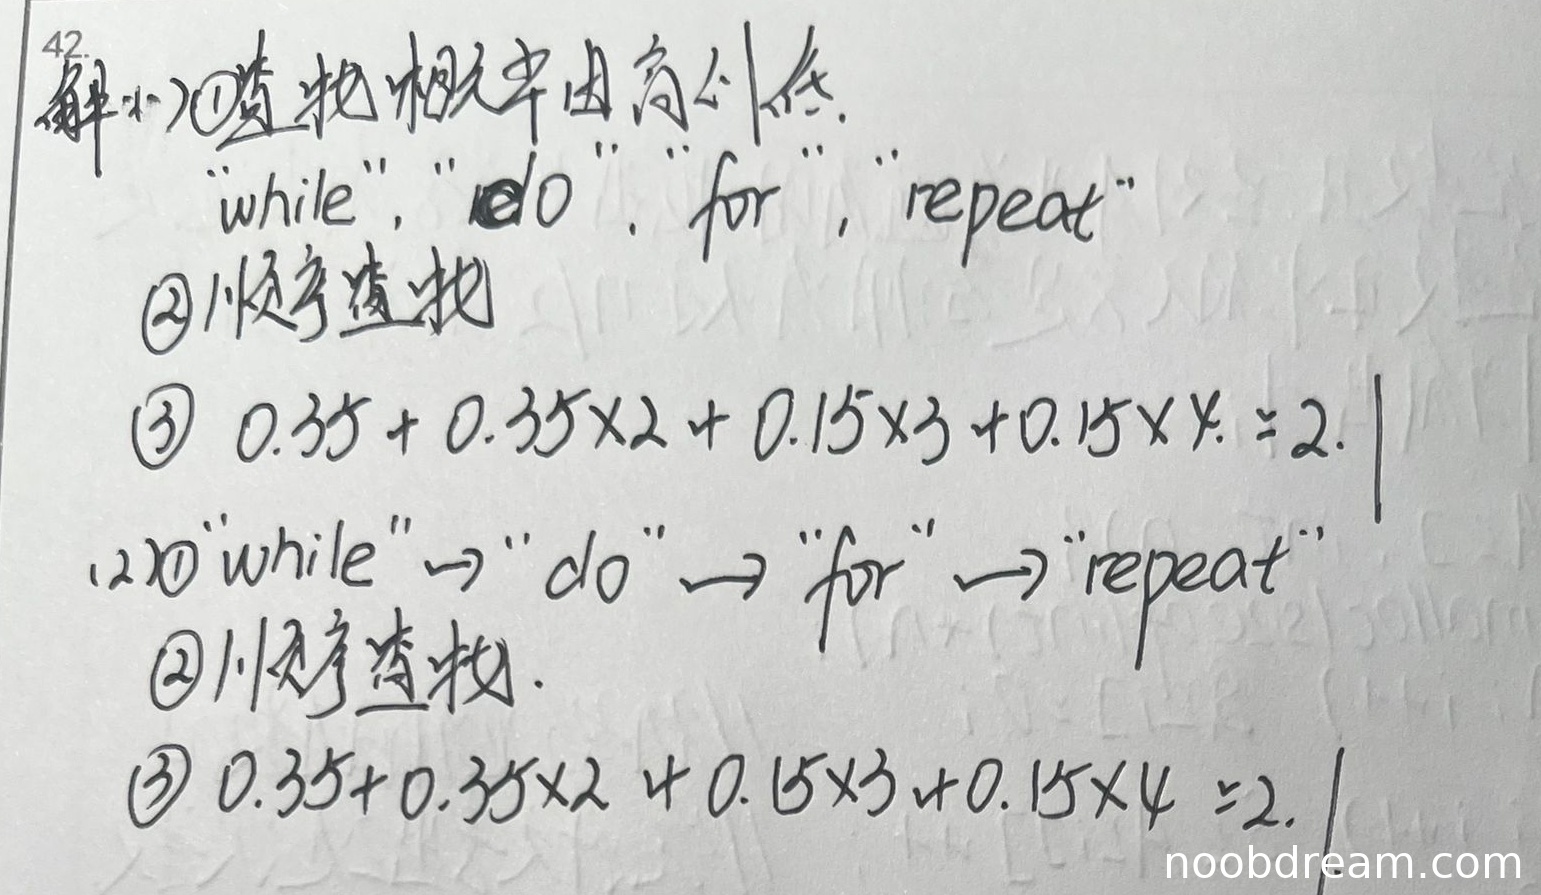 42.
解(1)①查找概率由高到低.
"while", "do", "for", "repeat"
②顺序查找
③ 0.35 + 0.35×2 + 0.15×3 + 0.15×4 = 2.1
(2)①"while"→"do"→"for"→"repeat"
②顺序查找.
③ 0.35+0.35×2 + 0.15×3 + 0.15×4 = 2.1
noobdream.com